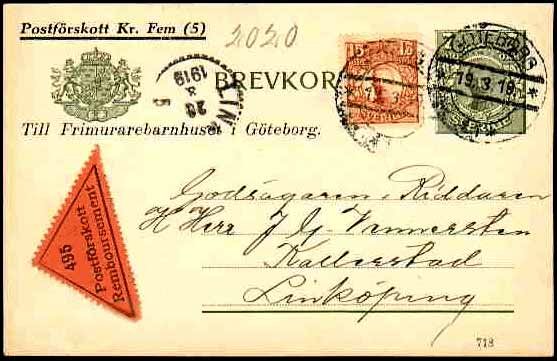 Postförskott Kr. Fem (5)
2020
BREVKOR
15 15
GÖTEBORG
19.3.19.
23
3
1919
5
Till Frimurarebarnhuset i Göteborg.
495
Postförskott
Remboursement
Godsägaren, Riddaren
Herr J. G. Wennersten
Kallerstad
Linköping
718